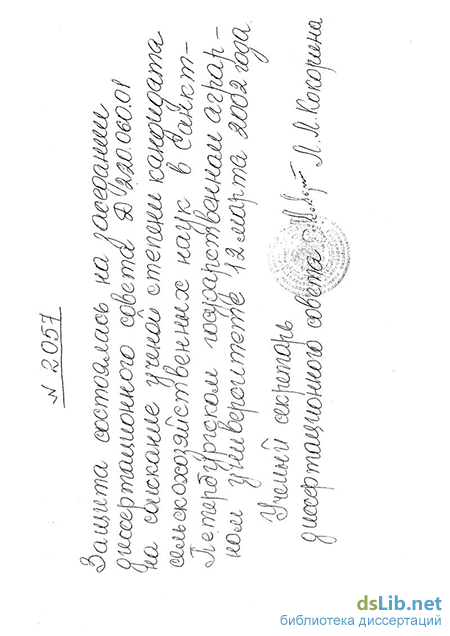 N 2057
Защита состоялась на заседании
диссертационного совета Д 220.060.01
на соискание ученой степени кандидата
сельскохозяйственных наук в Санкт-
Петербургском государственном аграр-
ном университете 12 марта 2002 года.
Ученый секретарь
диссертационного совета Л.М. Кокорина
dsLib.net
библиотека диссертаций